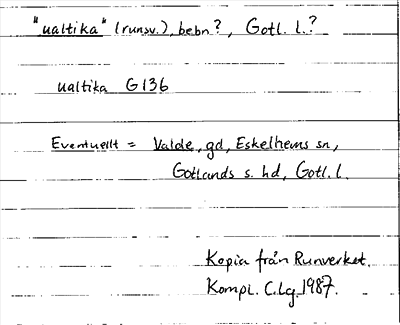 "ualtika" (runsv.), bebn?, Gotl. l.?
ualtika G136
Eventuellt = Valde, gd, Eskelhems sn,
Gotlands s. hd, Gotl. l.
Kopia från Runverket.
Kompl. C.Lg. 1987.